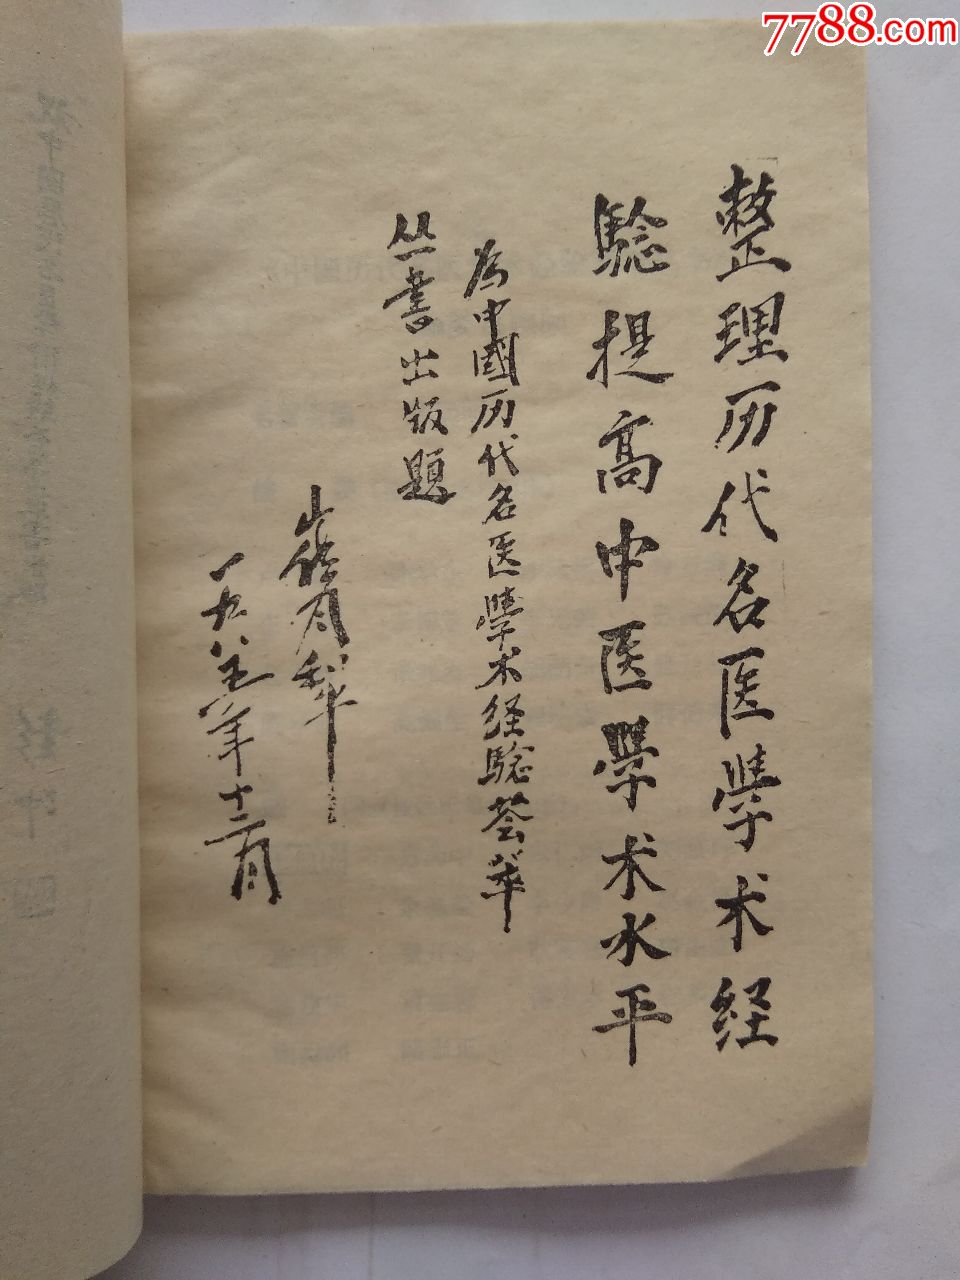 7788.com
整理历代名医學术经
驗提高中医學术水平
为中國历代名医學术经驗荟萃
丛書出版題
崔月犁
一九八五年十二月